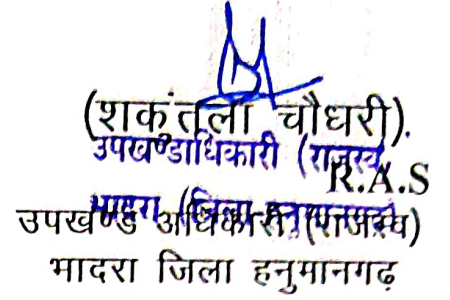 (शकुंतला चौधरी).
उपखण्डाधिकारी (राजस्व)
R.A.S
भादरा (जिला-हनुमानगढ़)
उपखण्ड अधिकारी (राजस्व)
भादरा जिला हनुमानगढ़